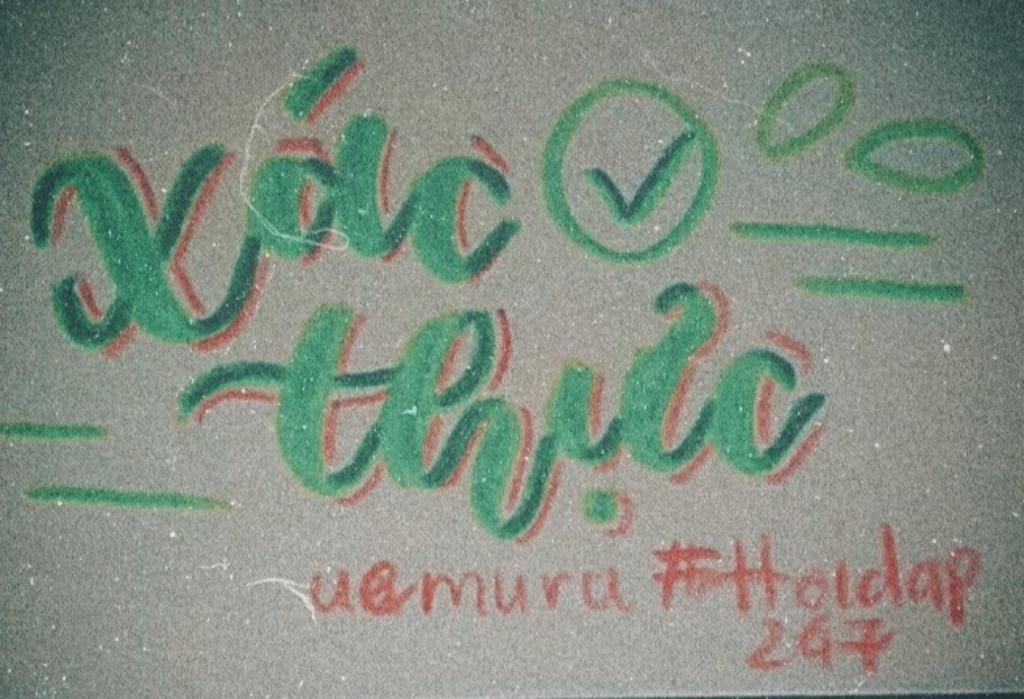 Xác
thực
uemuru #Hoidap
247